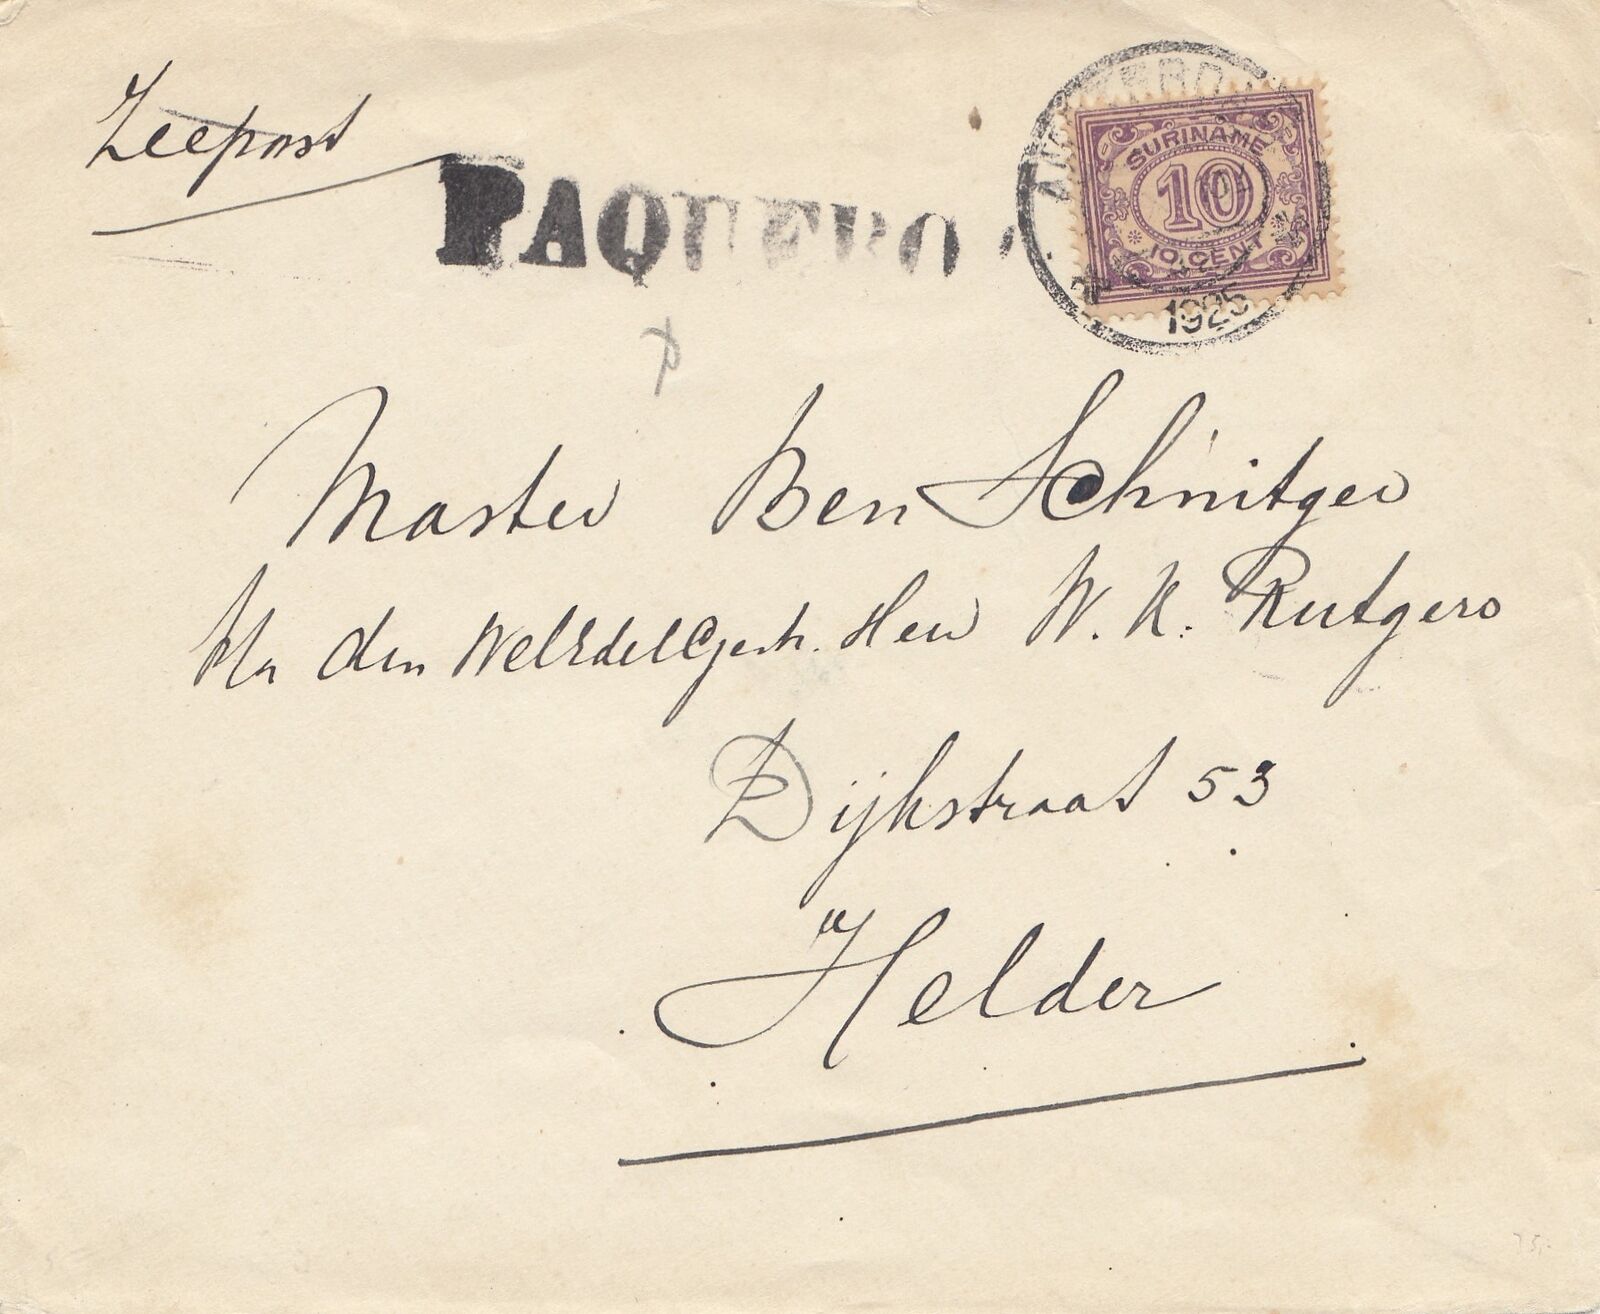 Zeepost
PAQUEBO
AMSTERD
SURINAME
10
10 CENT
1925
Master Ben Schnitger
den WelEdelGestr. Heer W. K. Rutgers
Dijkstraat 53
Helder